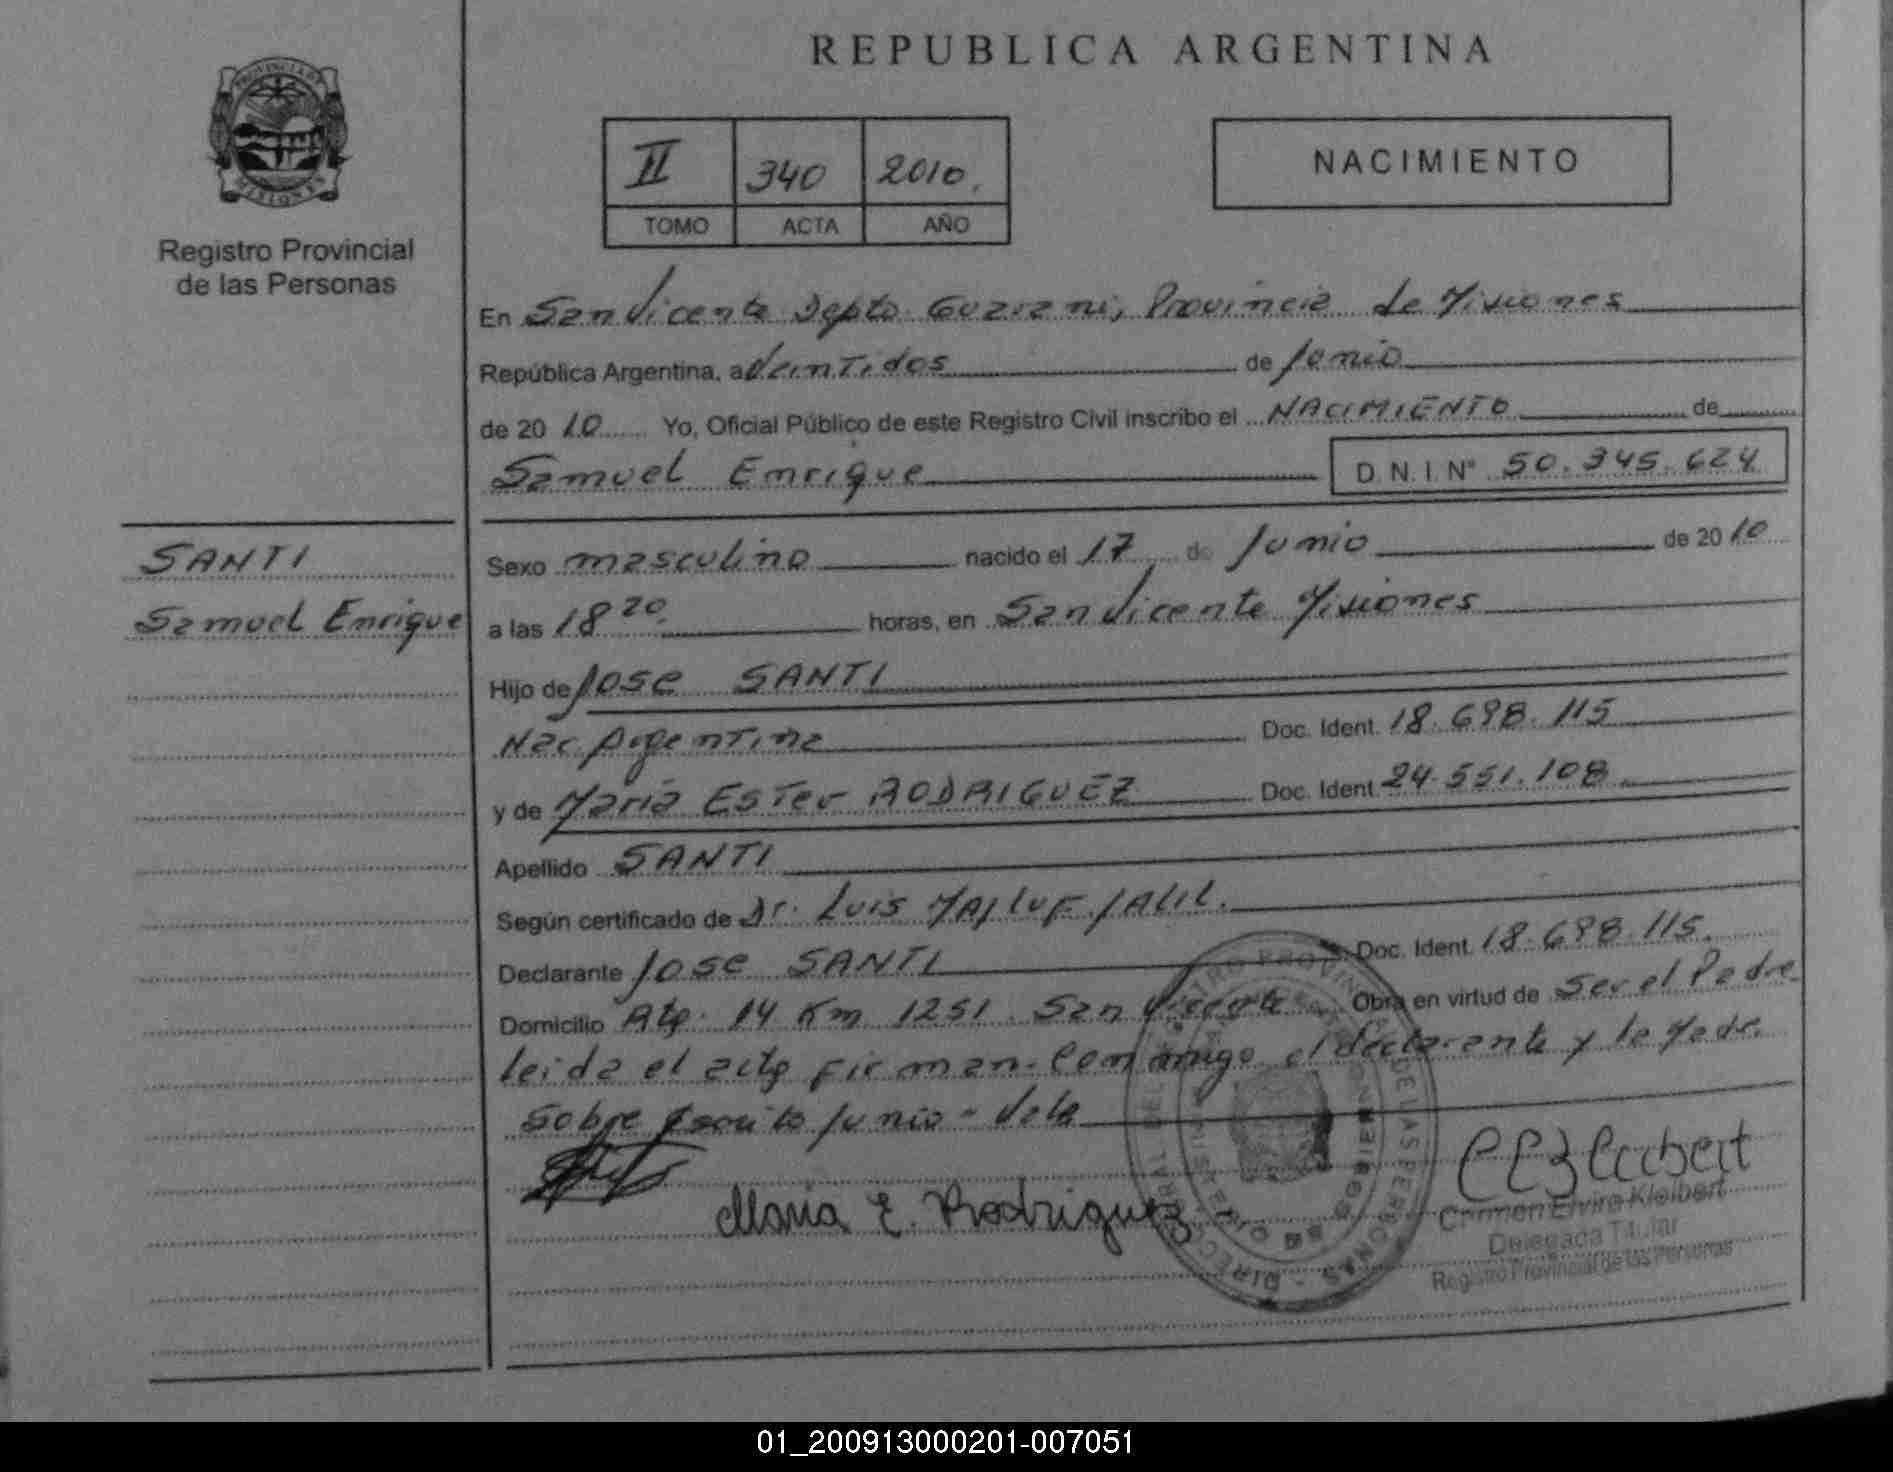 REPUBLICA ARGENTINA
PROVINCIA DE
MISIONES
Registro Provincial
de las Personas
II 340 2010.
TOMO ACTA AÑO
NACIMIENTO
En San Vicente Depto Guarani, Provincia de Misiones
República Argentina, a Veintidos de Junio
de 2010 Yo, Oficial Público de este Registro Civil inscribo el NACIMIENTO de
Samuel Enrique D.N.I. Nº 50.345.624
SANTI
Samuel Enrique
Sexo masculino nacido el 17 de Junio de 2010
a las 18 20. horas, en San Vicente Misiones
Hijo de Jose SANTI
Nac. Argentina Doc. Ident. 18.698.115
y de Maria Ester RODRIGUEZ Doc. Ident. 24.551.108
Apellido SANTI
Según certificado de Dr. Luis JALIL.
Declarante Jose SANTI Doc. Ident. 18.698.115.
Domicilio 14 Km 1251 San Vicente Obra en virtud de Ser el Padre
leida el acta firman conmigo el declarante y la Madre.
Sobre escrito Junio - Vale
Maria E. Rodriguez
Carmen Elvira Kleibert
Delegada Titular
Registro Provincial de las Personas
01_200913000201-007051